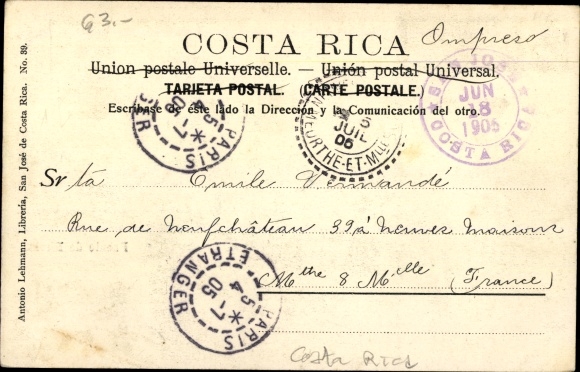 G3.-
COSTA RICA
Ompreso
Union postale Universelle. — Unión postal Universal.
TARJETA POSTAL. (CARTE POSTALE.)
Escríbase de éste lado la Dirección y la Comunicación del otro.
SAN JOSE
JUN
18
1905
COSTA RICA
PARIS ETRANGER
5
4 -7
05
JUIL
05
MEURTHE-ET-MLLE
Srta Emile Vermandé
Rue de Neufchâteau 39 à Neuves Maisons
Mthe & Mlle (France)
PARIS ETRANGER
5
4 -7
05
Costa Rica
Antonio Lehmann, Librería, San José de Costa Rica. No. 39.